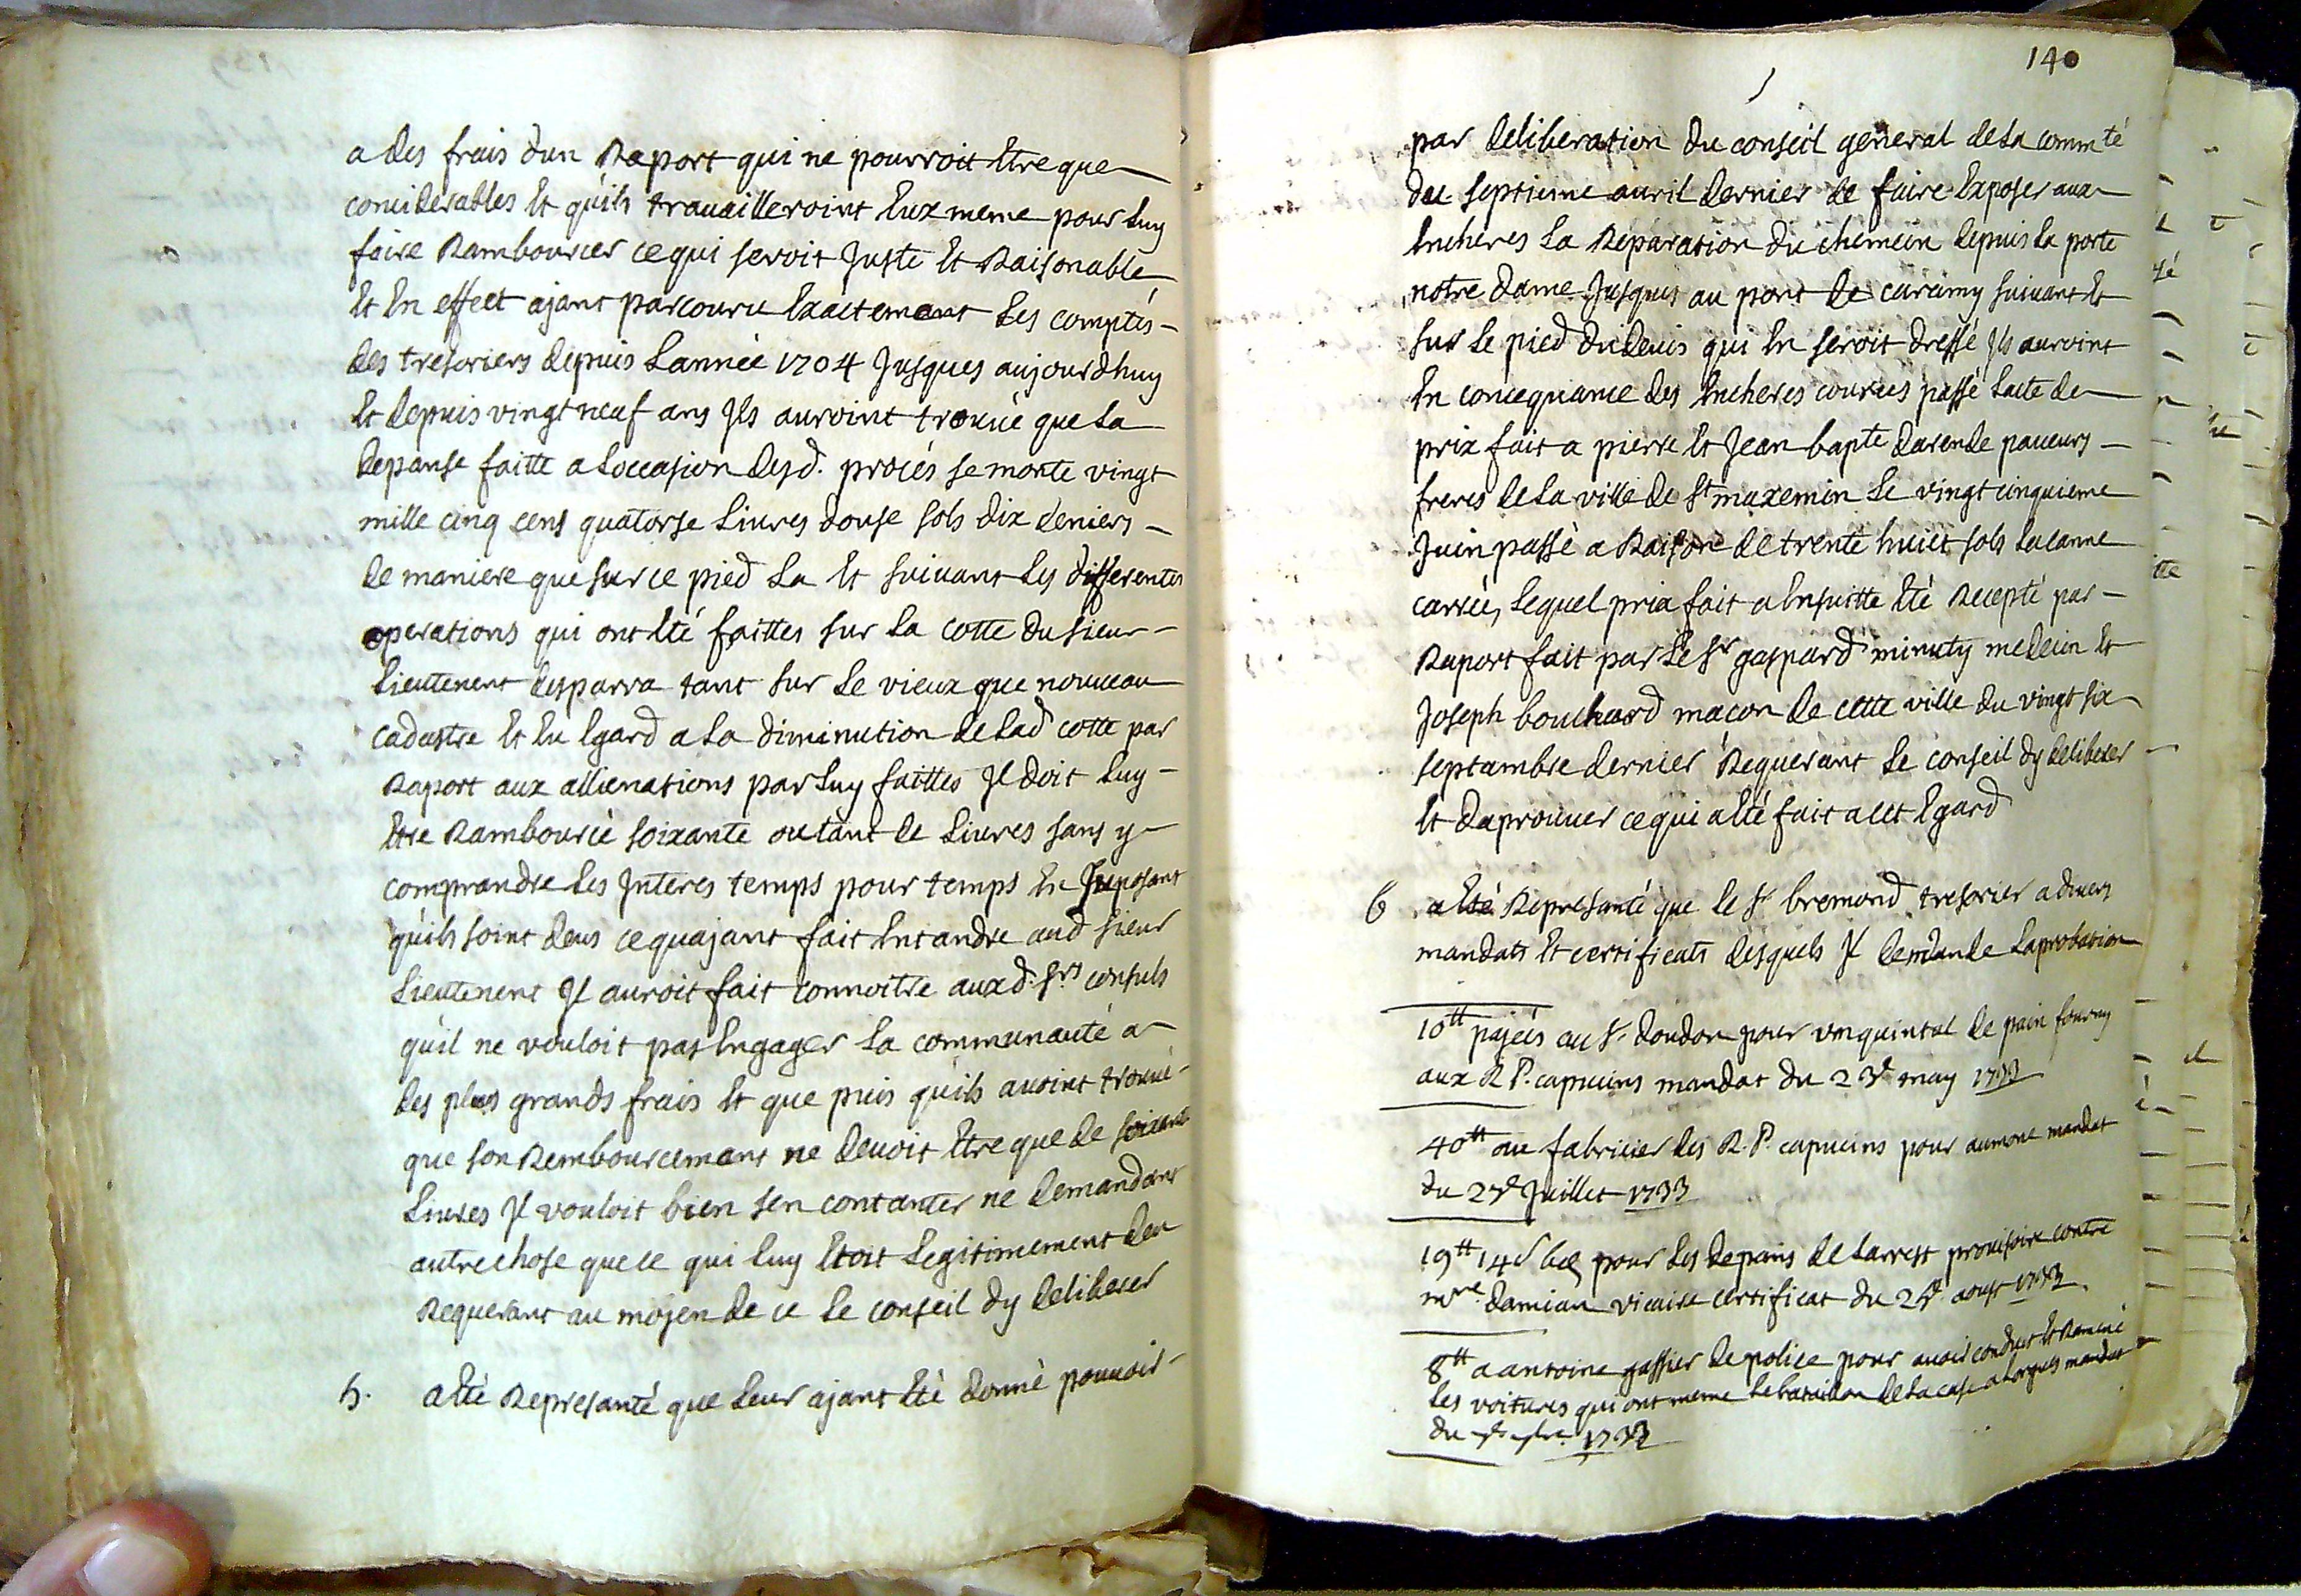 a des frais dun Raport qui ne pourroit Etre que
considerables Et quils travailleroint Eux meme pour luy
faire Rambourcer ce qui seroit Juste Et Raisonable
Et En effect ajant parcouru Exactemant les comptés
des tresoriers depuis Lannée 1704 Jusques aujourdhuy
Et depuis vingt neuf ans Jls auroint trouué que la
depanse faitte a loccasion desd. procés se monte vingt
mille cinq cens quatorse Liures douse sols dix deniers
de maniere que sur ce pied la Et suiuant les differentes
operations qui ont Eté faittes sur la cotte du sieur
Lieutenent desparra tant sur le vieux que nouueau
cadastre Et Eu Egard a la diminution de lad cotte par
Raport aux allienations par luy faittes Jl doit luy
Etre Rambourcé soixante outant de Liures sans y
comprandre les Jnteres temps pour temps En suposant
quils soint deus ce quajant fait Entandre aud sieur
Lieutenent Jl auroit fait connoitre auxd. Srs consuls
quil ne vouloit pas Engager la communauté a
des plus grands frais Et que puis quils auoint trouué
que son Rembourcemant ne deuoit Etre que de soixante
Liures Jl vouloit bien sen contanter ne demandant
autre chose que ce qui luy Etoit legitimement deu
Requerant au moyen de ce le conseil dy deliberer
5. a Eté Represanté que leur ajant Eté donné pouuoir
140
par deliberation du conseil general de la commté
du septieme auril dernier de faire Exposer aux
Encheres la Reparation du chemein depuis la porte
notre dame Jusques au pont de caramy suiuant Et
sur le pied du deuis qui En seroit dressé Jls auroint
En concequance des Encheres courues passé lacte de
prix fait a pierre Et Jean bapte darende paueurs
freres de la ville de St maxemin le vingt cinquieme
Juin passé a Raison de trente huict sols la canne
carrée, lequel prix fait a Ensuitte Eté Recepté par
Raport fait par le Sr gaspard minuty medecin Et
Joseph bouchard macon de cette ville du vingt six
septambre dernier Requerant le conseil dy deliberer
Et daprouuer ce qui a Eté fait a cet Egard
6 a Eté Represanté que le Sr bremond tresorier a divers
mandats Et certificats desquels Jl demande laprobation
10tt pajées au Sr doudon pour un quintal de pain fourny
aux R P. capucins mandat du 23e may 1733
40tt au fabricier des R. P. capucins pour aumone mandat
du Juillet 1733
19tt 14s pour les depans de larrest prouisoire contre
mre damian vicaire certificat du aoust 1733
8tt a antoine gassier de police pour auoir conduit Et Ramené
les voitures qui ont mene le bataillon de la a lorgues mandat
du 1733